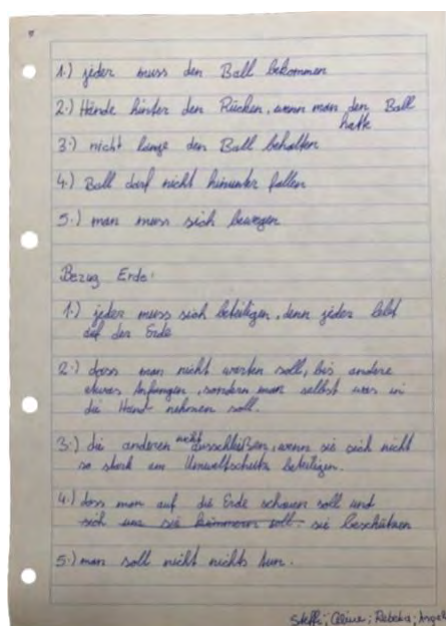 1.) jeder muss den Ball bekommen
2.) Hände hinter den Rücken, wenn man den Ball
hatte
3.) nicht lange den Ball behalten
4.) Ball darf nicht hinunter fallen
5.) man muss sich bewegen
Bezug Erde:
1.) jeder muss sich beteiligen, denn jeder lebt
auf der Erde
2.) dass man nicht warten soll, bis andere
etwas anfangen, sondern man selbst was in
die Hand nehmen soll.
3.) die anderen nicht ausschließen, wenn sie sich nicht
so stark am Umweltschutz beteiligen.
4.) dass man auf die Erde schauen soll und
sich um sie kümmern soll. sie beschützen
5.) man soll nicht nichts tun.
Steffi; Celine; Rebeka;